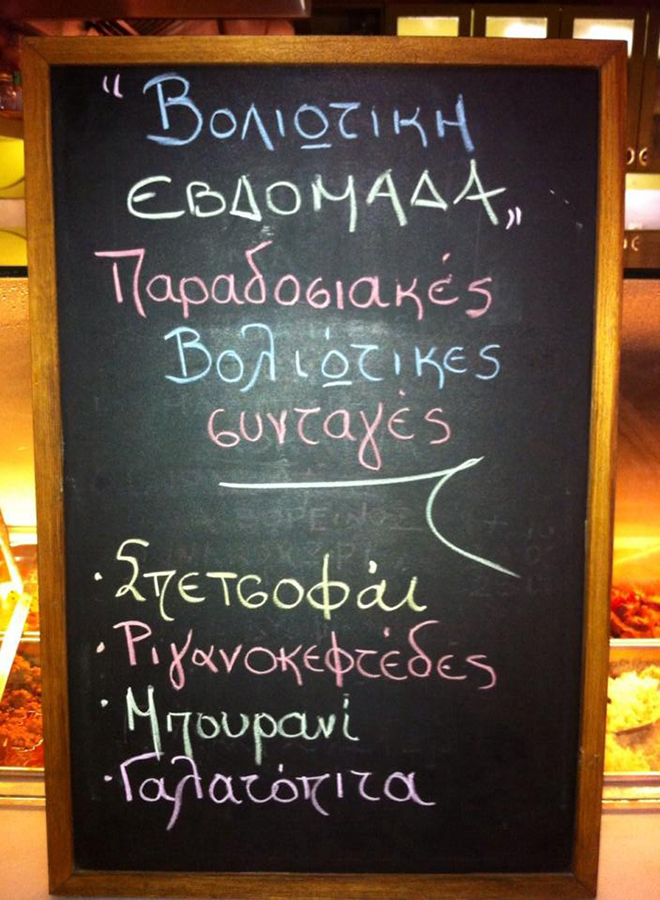 “Βολιωτικη
ΕΒΔΟΜΑΔΑ„
Παραδοσιακές
Βολιώτικες
συνταγές
· Σπετσοφάι
· Ριγανοκεφτέδες
· Μπουρανί
· Γαλατόπιτα